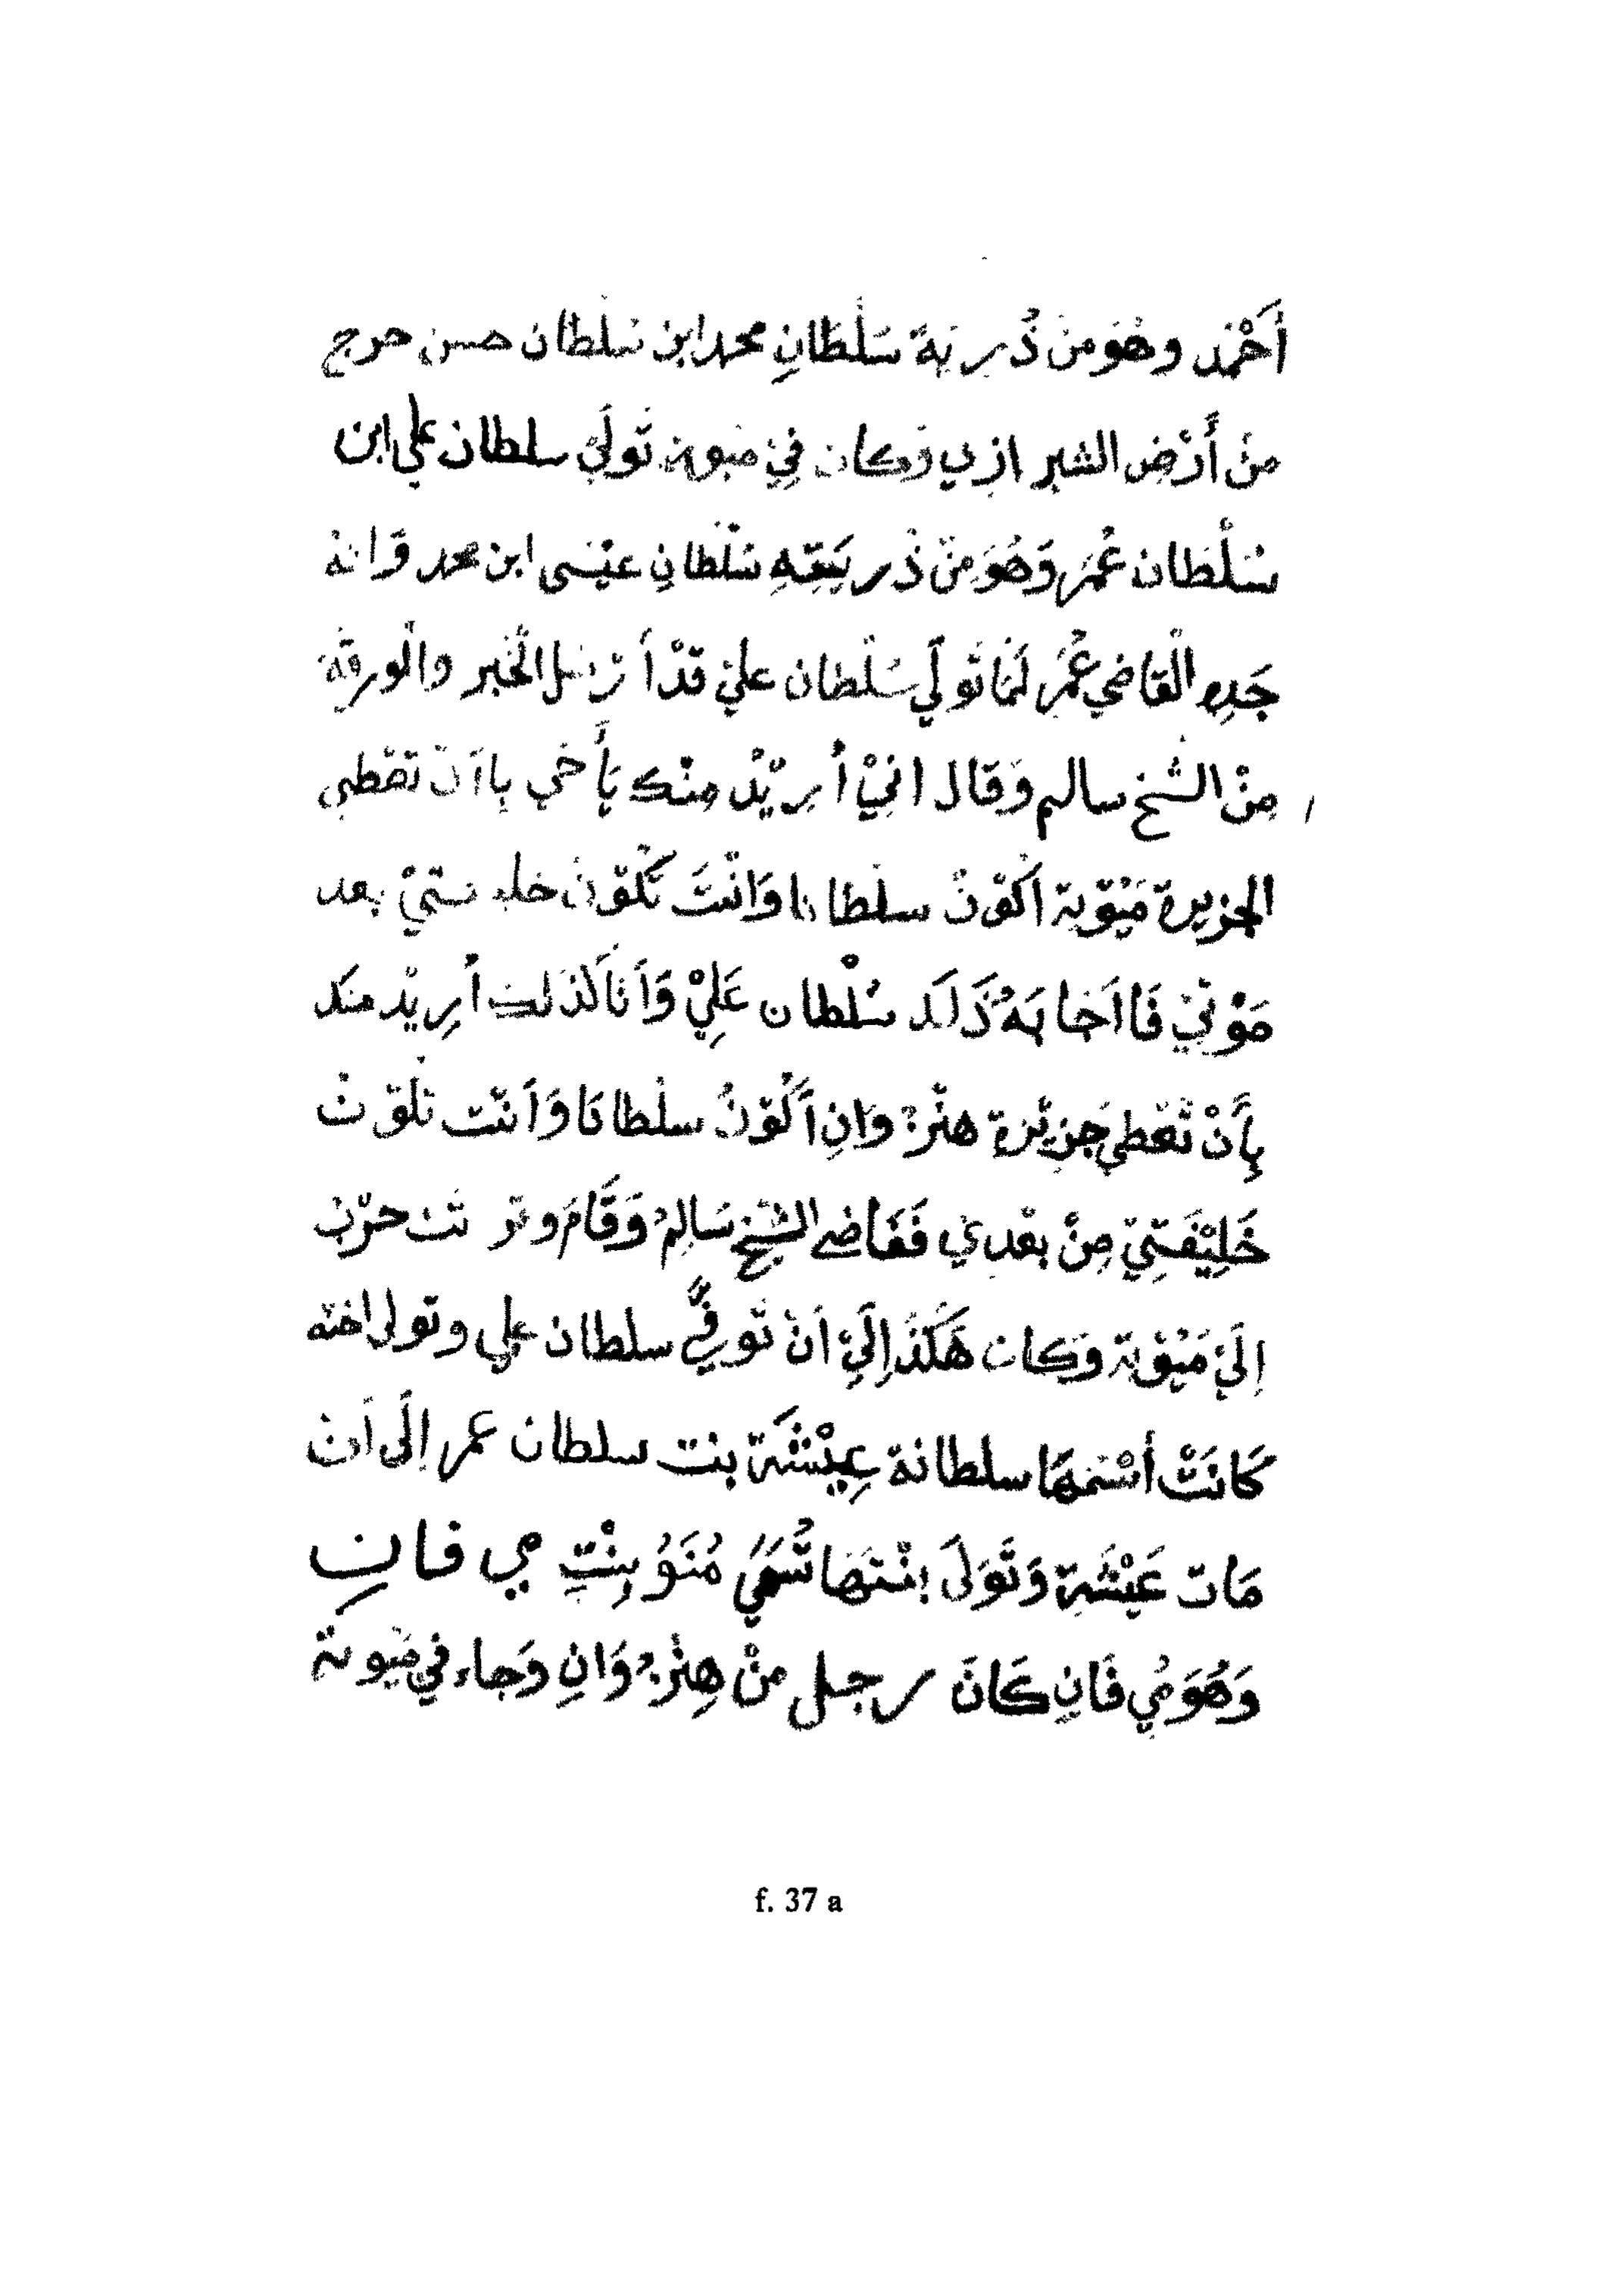 أَحْمَد وَهُوَ مِنْ ذُرِيَةَ سَلْطَانِ محمد ابن سُلطان حسن خرج
مِنْ أَرْضِ الشيرازي وَكان فِيْ مَيوته تَوَلَيْ سلطان علي ابن
سُلْطَان عُمَرَ وَهُوَ مِنْ ذُريَتِهِ سُلْطَانِ عيْسَى ابن محمد وَانهُ
جَدِهِ الْقاضي عُمَر لَمَا تَوَلَي سُلْطان عليْ قَدْ أَرْسل الْخَبر والْورقة
مِنْ الشَيخ سالم وَقال انيْ أُرِيْدُ مِنْك يَأَخي بِااَنْ تعْطي
الجزيرة مَيْوتة اَكُوْنُ سلْطانا وَانْتَ تَكُوْنُ خليفتيْ بعد
مَوْتيْ فَااَجابَهُ ذَالَك سُلْطان عَلِيْ وَأَنَا كَذَلك أُرِيْد منك
بِأَنْ تَعْطي جزيْرة هنْزوَانِ أَكُوْنُ سلْطانا وَأَنْت تكُوْنُ
خَلِيْفَتِيْ مِنْ بعْدِيْ فَغَاضي الشَيْخ سَالِمْ وَقَامَ حرْب
اِلَيْ مَيْوْتة وَكان هَكَذَ اِلَيْ اَنْ تَوفيَّ سلطان علي وتولى اخته
كَانَتْ أسْمهَا سلطانة عِيْشَة بنت سلطان عمر اِلَى اَن
مَات عَيْشَة وَتَوَلَ بنْتهَا تُسَمَيْ مُنَوُ بِنْتِ مِي فَانِ
وَهُوَ مُي فَانِ كَانَ رجل مِنْ هِنْزُوَانِ وَجاء في مَيوتة
f. 37 a